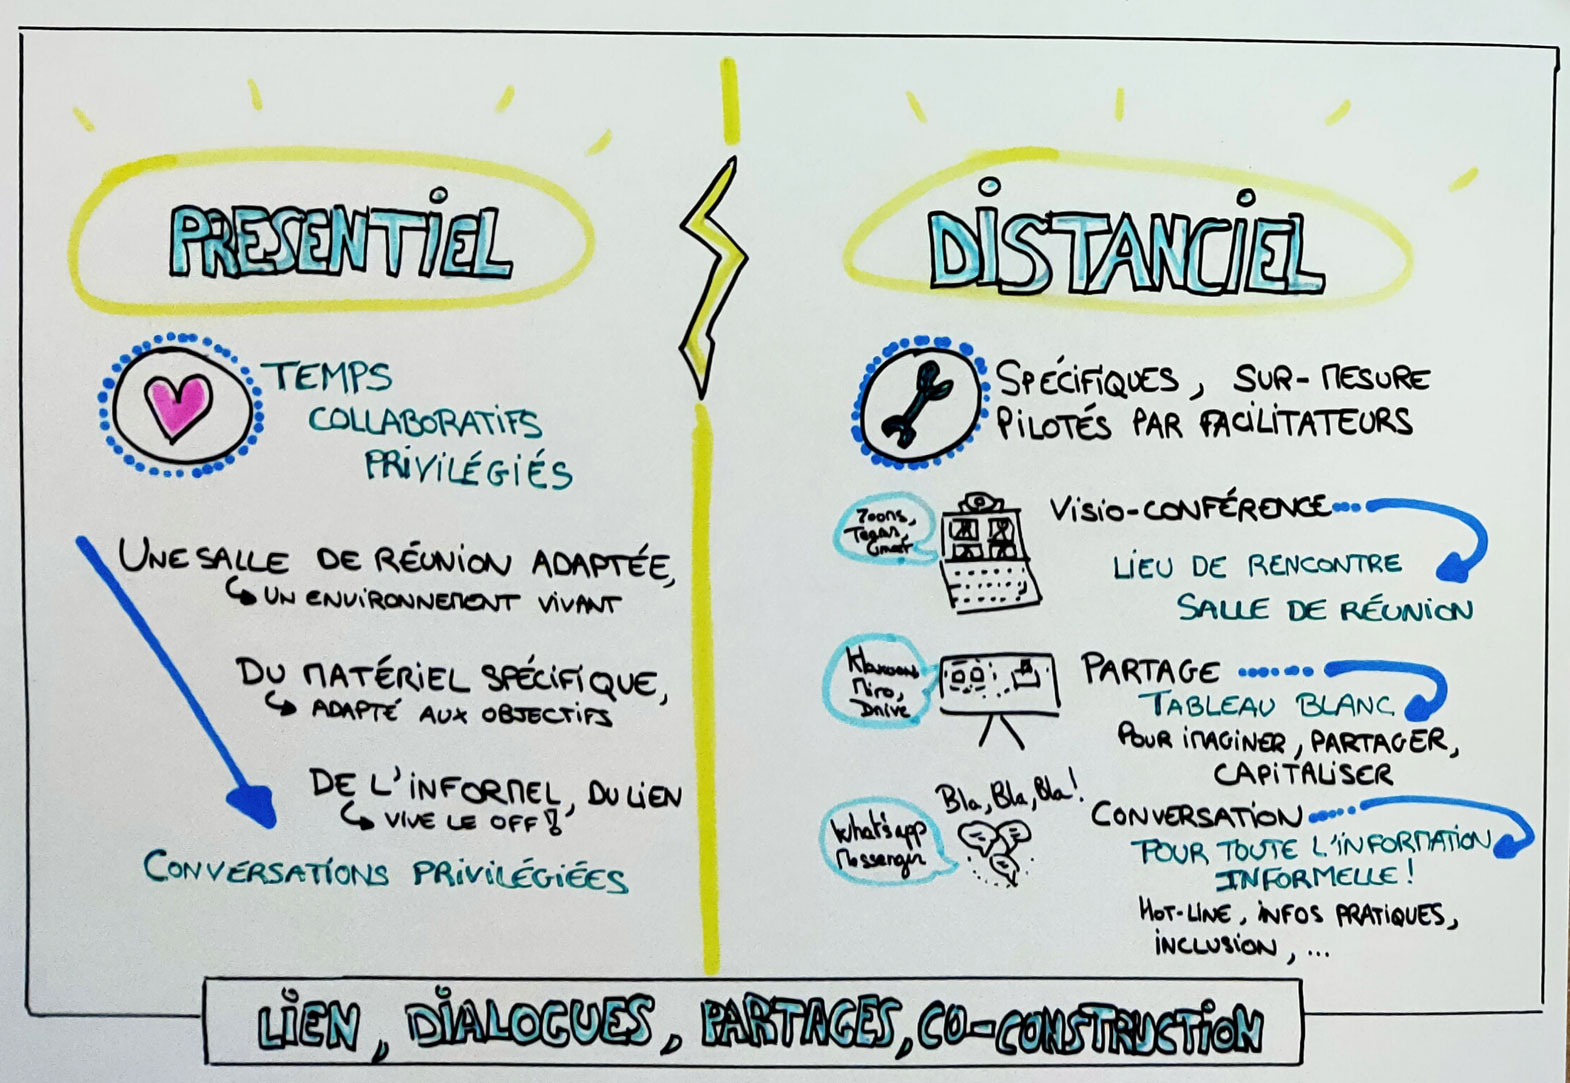 PRESENTIEL
TEMPS
COLLABORATIFS
PRIVILÉGIÉS
UNE SALLE DE RÉUNION ADAPTÉE,
UN ENVIRONNEMENT VIVANT
DU MATÉRIEL SPÉCIFIQUE,
ADAPTÉ AUX OBJECTIFS
DE L'INFORMEL, DU LIEN
VIVE LE OFF !
CONVERSATIONS PRIVILÉGIÉES
DISTANCIEL
SPÉCIFIQUES, SUR-MESURE
PILOTÉS PAR FACILITATEURS
VISIO-CONFÉRENCE
LIEU DE RENCONTRE
SALLE DE RÉUNION
Klaxoon
Miro,
Drive
PARTAGE
TABLEAU BLANC
POUR IMAGINER, PARTAGER,
CAPITALISER
Bla, Bla, Bla!
What's app
Messenger
CONVERSATION
POUR TOUTE L'INFORMATION
INFORMELLE !
HOT-LINE, INFOS PRATIQUES,
INCLUSION, ...
LIEN, DIALOGUES, PARTAGES, CO-CONSTRUCTION